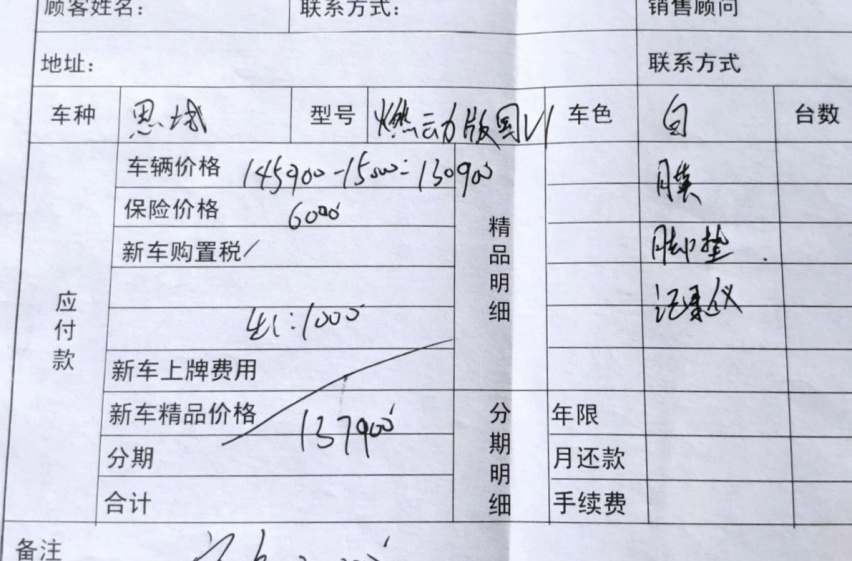 顾客姓名： 联系方式： 销售顾问
地址： 联系方式
车种 思域 型号 燃动版国VI 车色 白 台数
应付款
车辆价格 145900-15000=130900
保险价格 6000
新车购置税/
1000
新车上牌费用
新车精品价格
137900
分期
合计
精品明细
膜
脚垫
记录仪
分期明细
年限
月还款
手续费
备注